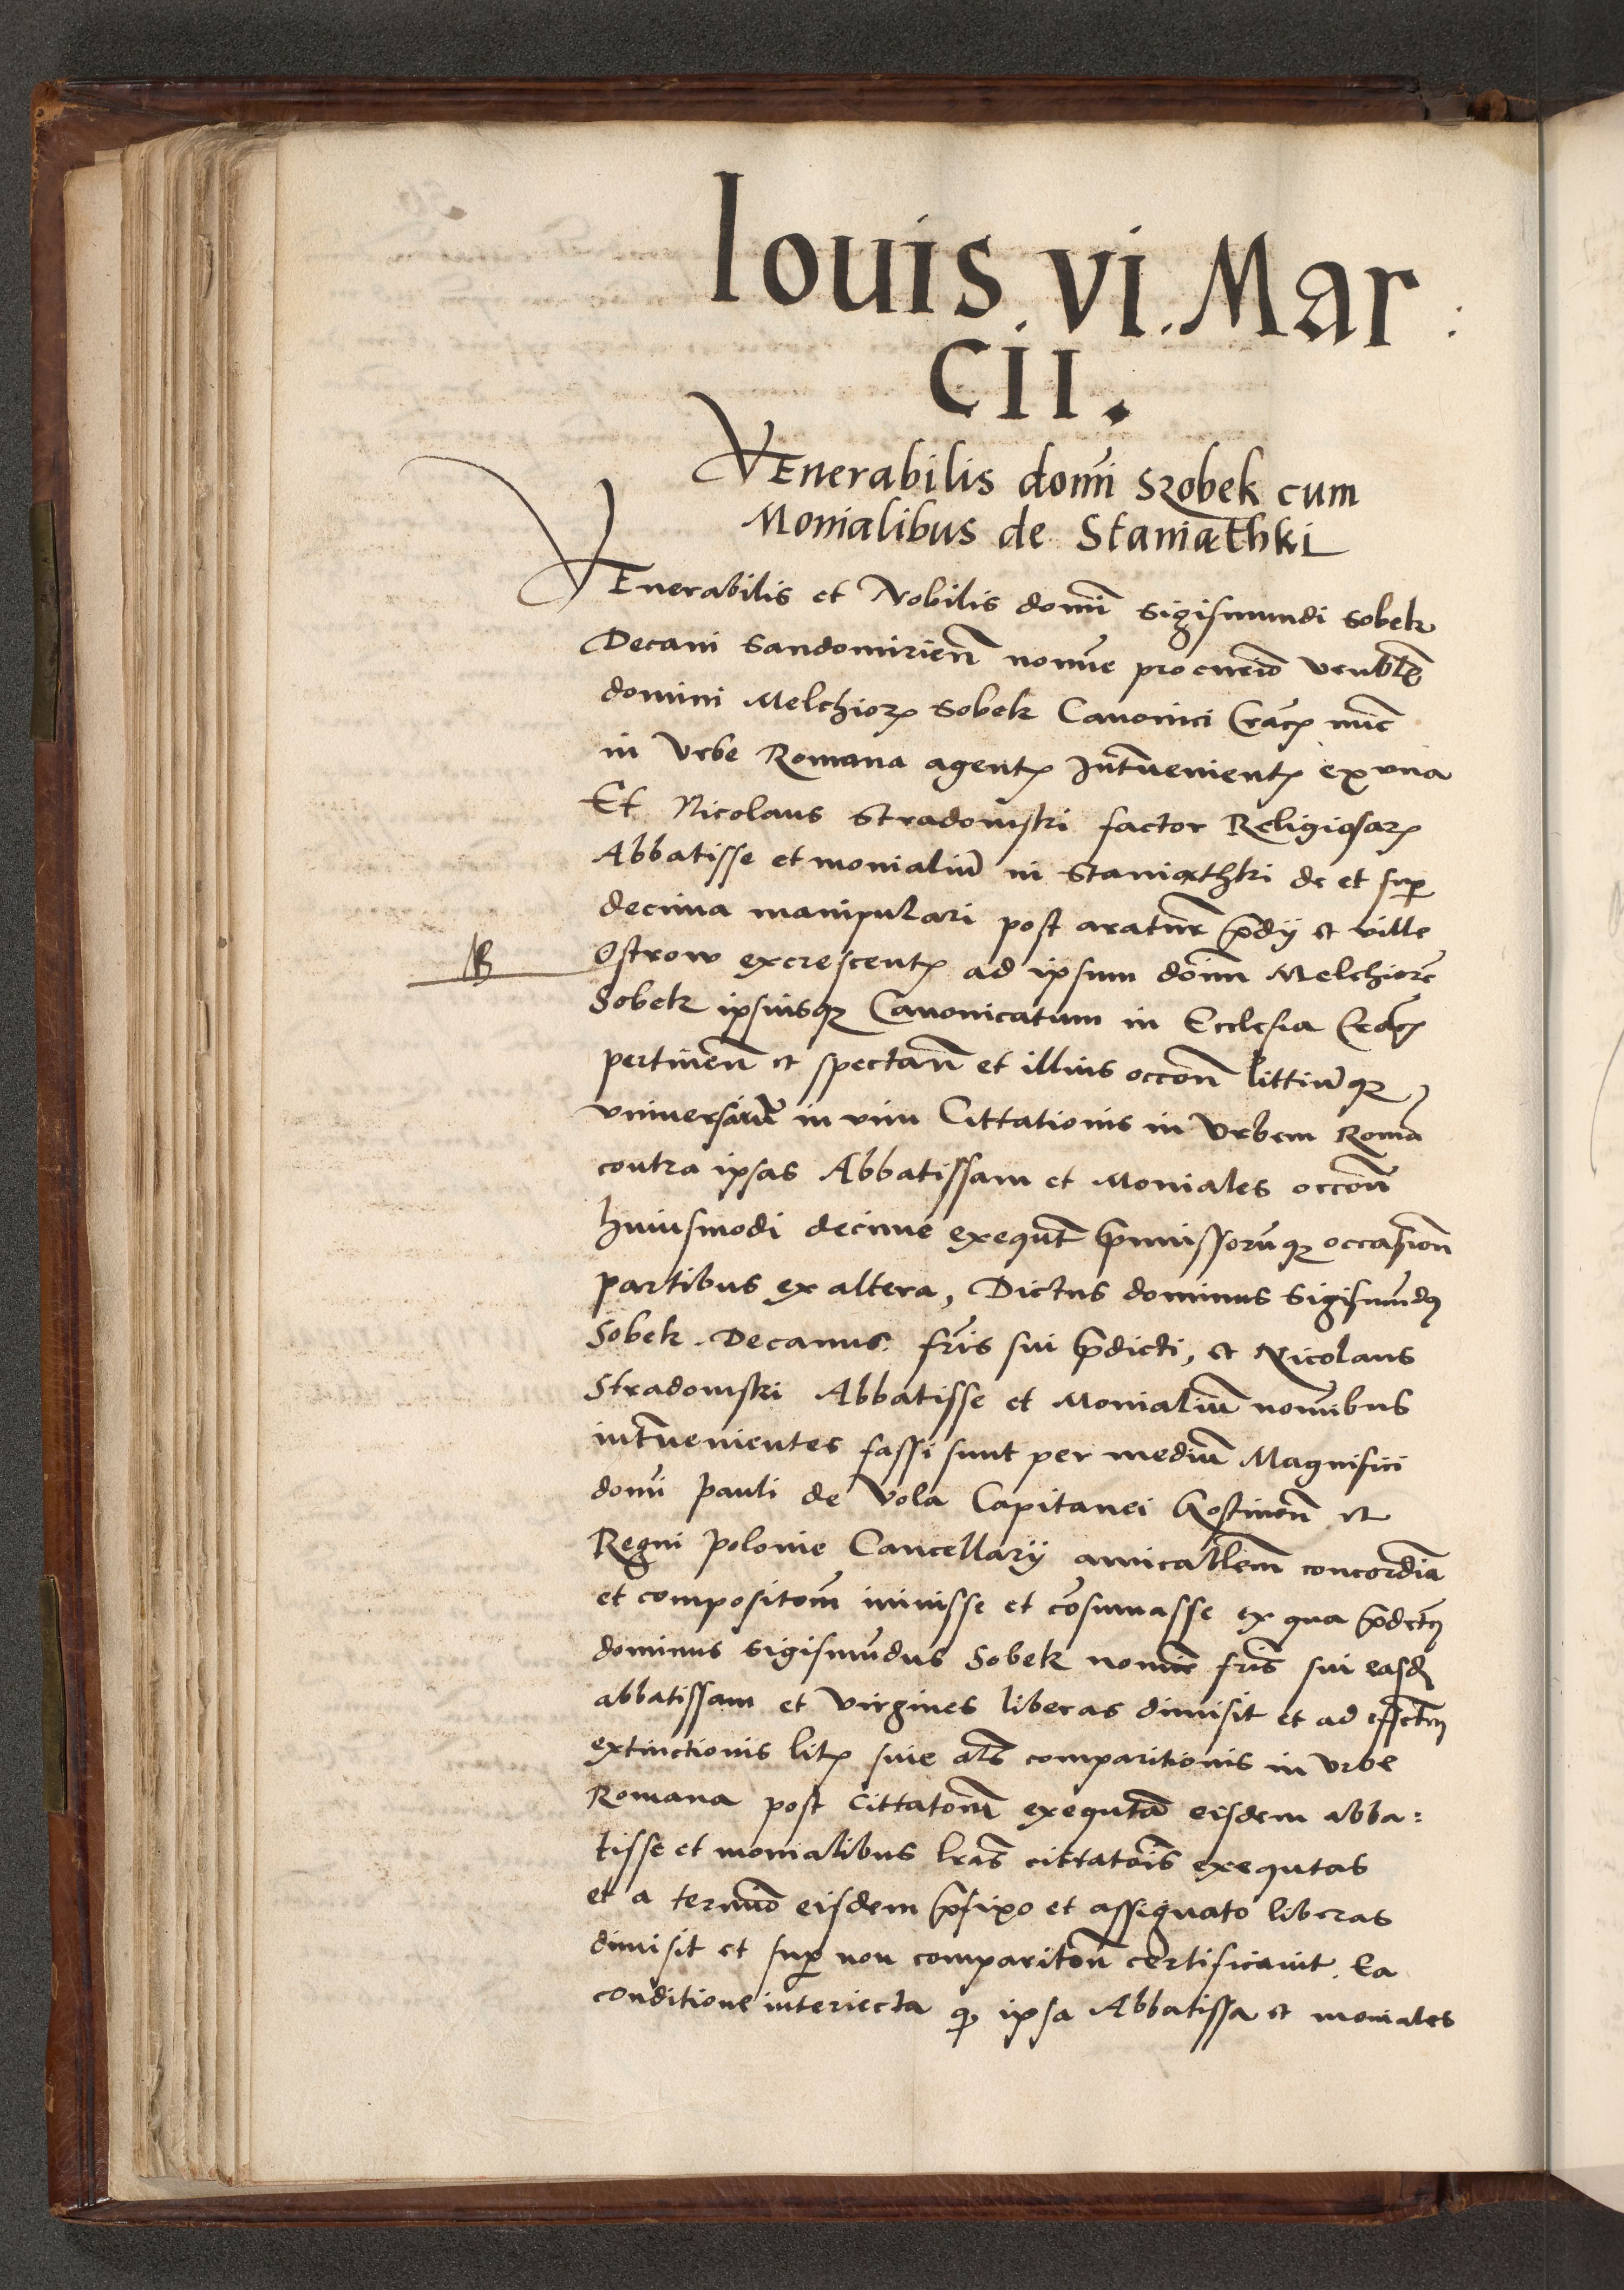 Iouis. vi. Mar:
cii.
Venerabilis domi Szobek cum
Monialibus de Staniathki
Venerabilis et Nobilis domi Sigismundi Sobek
Decani Sandomirien nomine
domini Melchior Sobek Canonici Crac nunc
in Vrbe Romana agent Interuenient ex vna
Et Nicolaus Stradomski factor Religiosar
Abbatisse et monialiu in Staniathki de et sup
decima manipulari post aratur pdy et ville
Ostrow excrescent ad ipsum dom Melchiore
Sobek ipsiusq Canonicatum in Ecclesia Crac
pertinen et spectan et illius occon littiumq
vniversarum in vim Cittationis in Vrbem Roma
contra ipsas Abbatissam et Moniales occon
huiusmodi decime exequt pmissoruq occasion
partibus ex altera, Dictus dominus Sigismund
Sobek. Decanus. fris sui pdicti, et Nicolaus
Stradomski Abbatisse et Monialiu nomibus
intuenientes fassi sunt per mediu Magnifici
domi Pauli de Vola Capitanei Gostinen et
Regni Polonie Cancellarij amicablem concordia
et compositom iniuisse et cosumasse ex qua pdict
dominus Sigismudus Sobek nomine fris sui easd
abbatissam et Virgines liberas dimisit et ad effectu
extinctionis lit siue als comparitionis in Vrbe
Romana post Cittatom exequta eisdem abba:
tisse et monialibus lras cittatois exequtas
et a termio eisdem pfixo et assignato liberas
dimisit et sup non compariton certificauit. Ea
conditione interiecta q ipsa Abbatissa et moniales